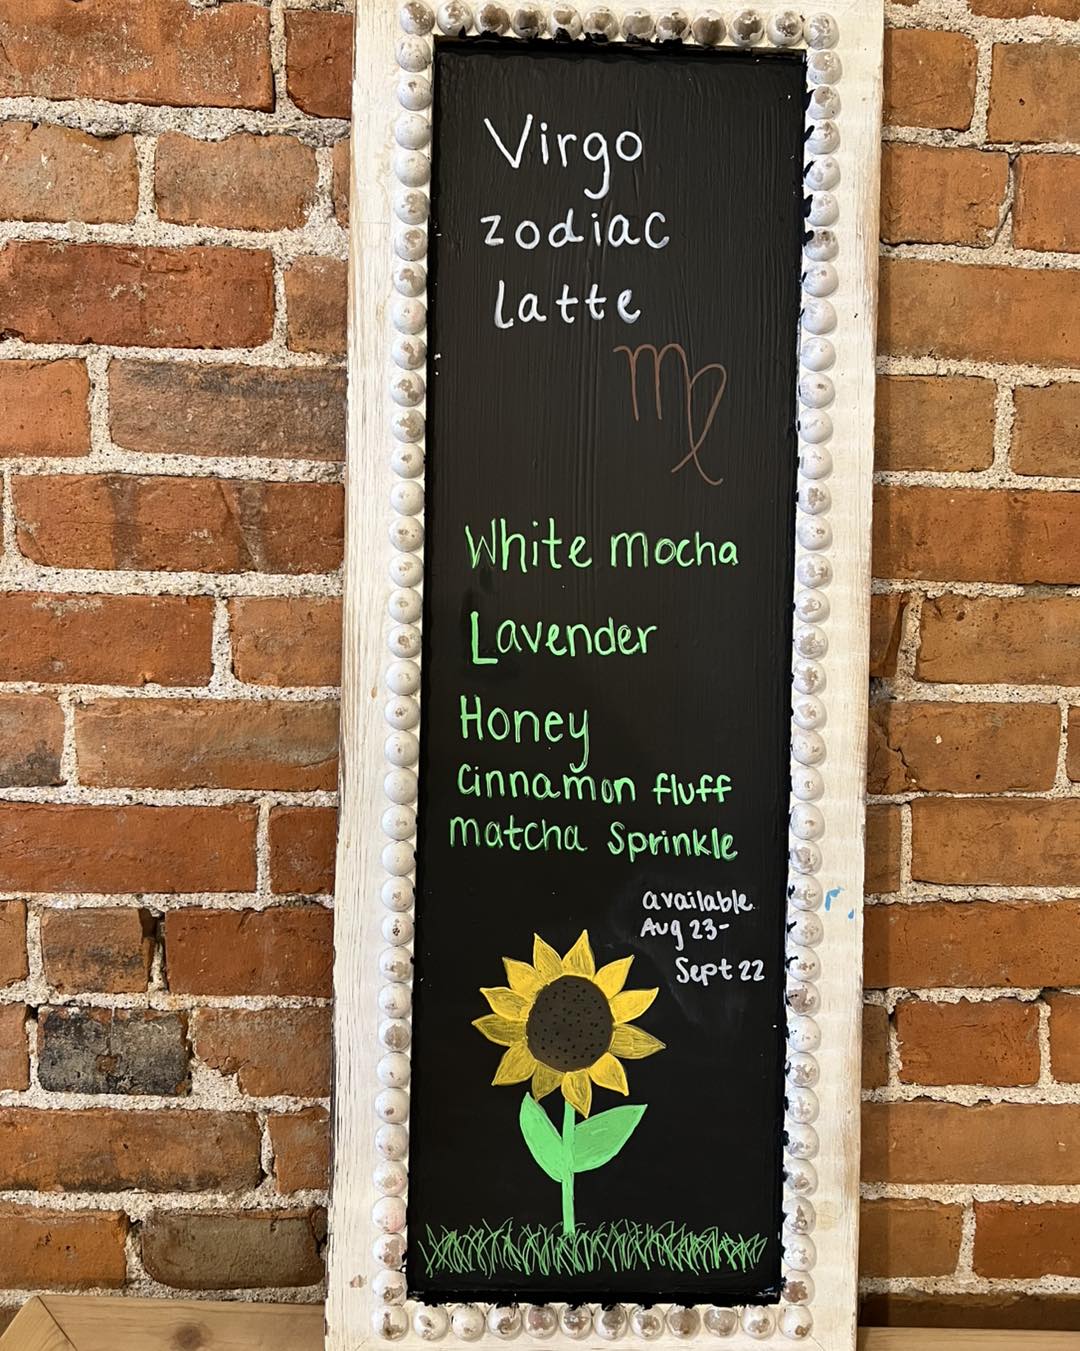 Virgo
zodiac
Latte
White mocha
Lavender
Honey
Cinnamon fluff
matcha Sprinkle
available
Aug 23-
Sept 22